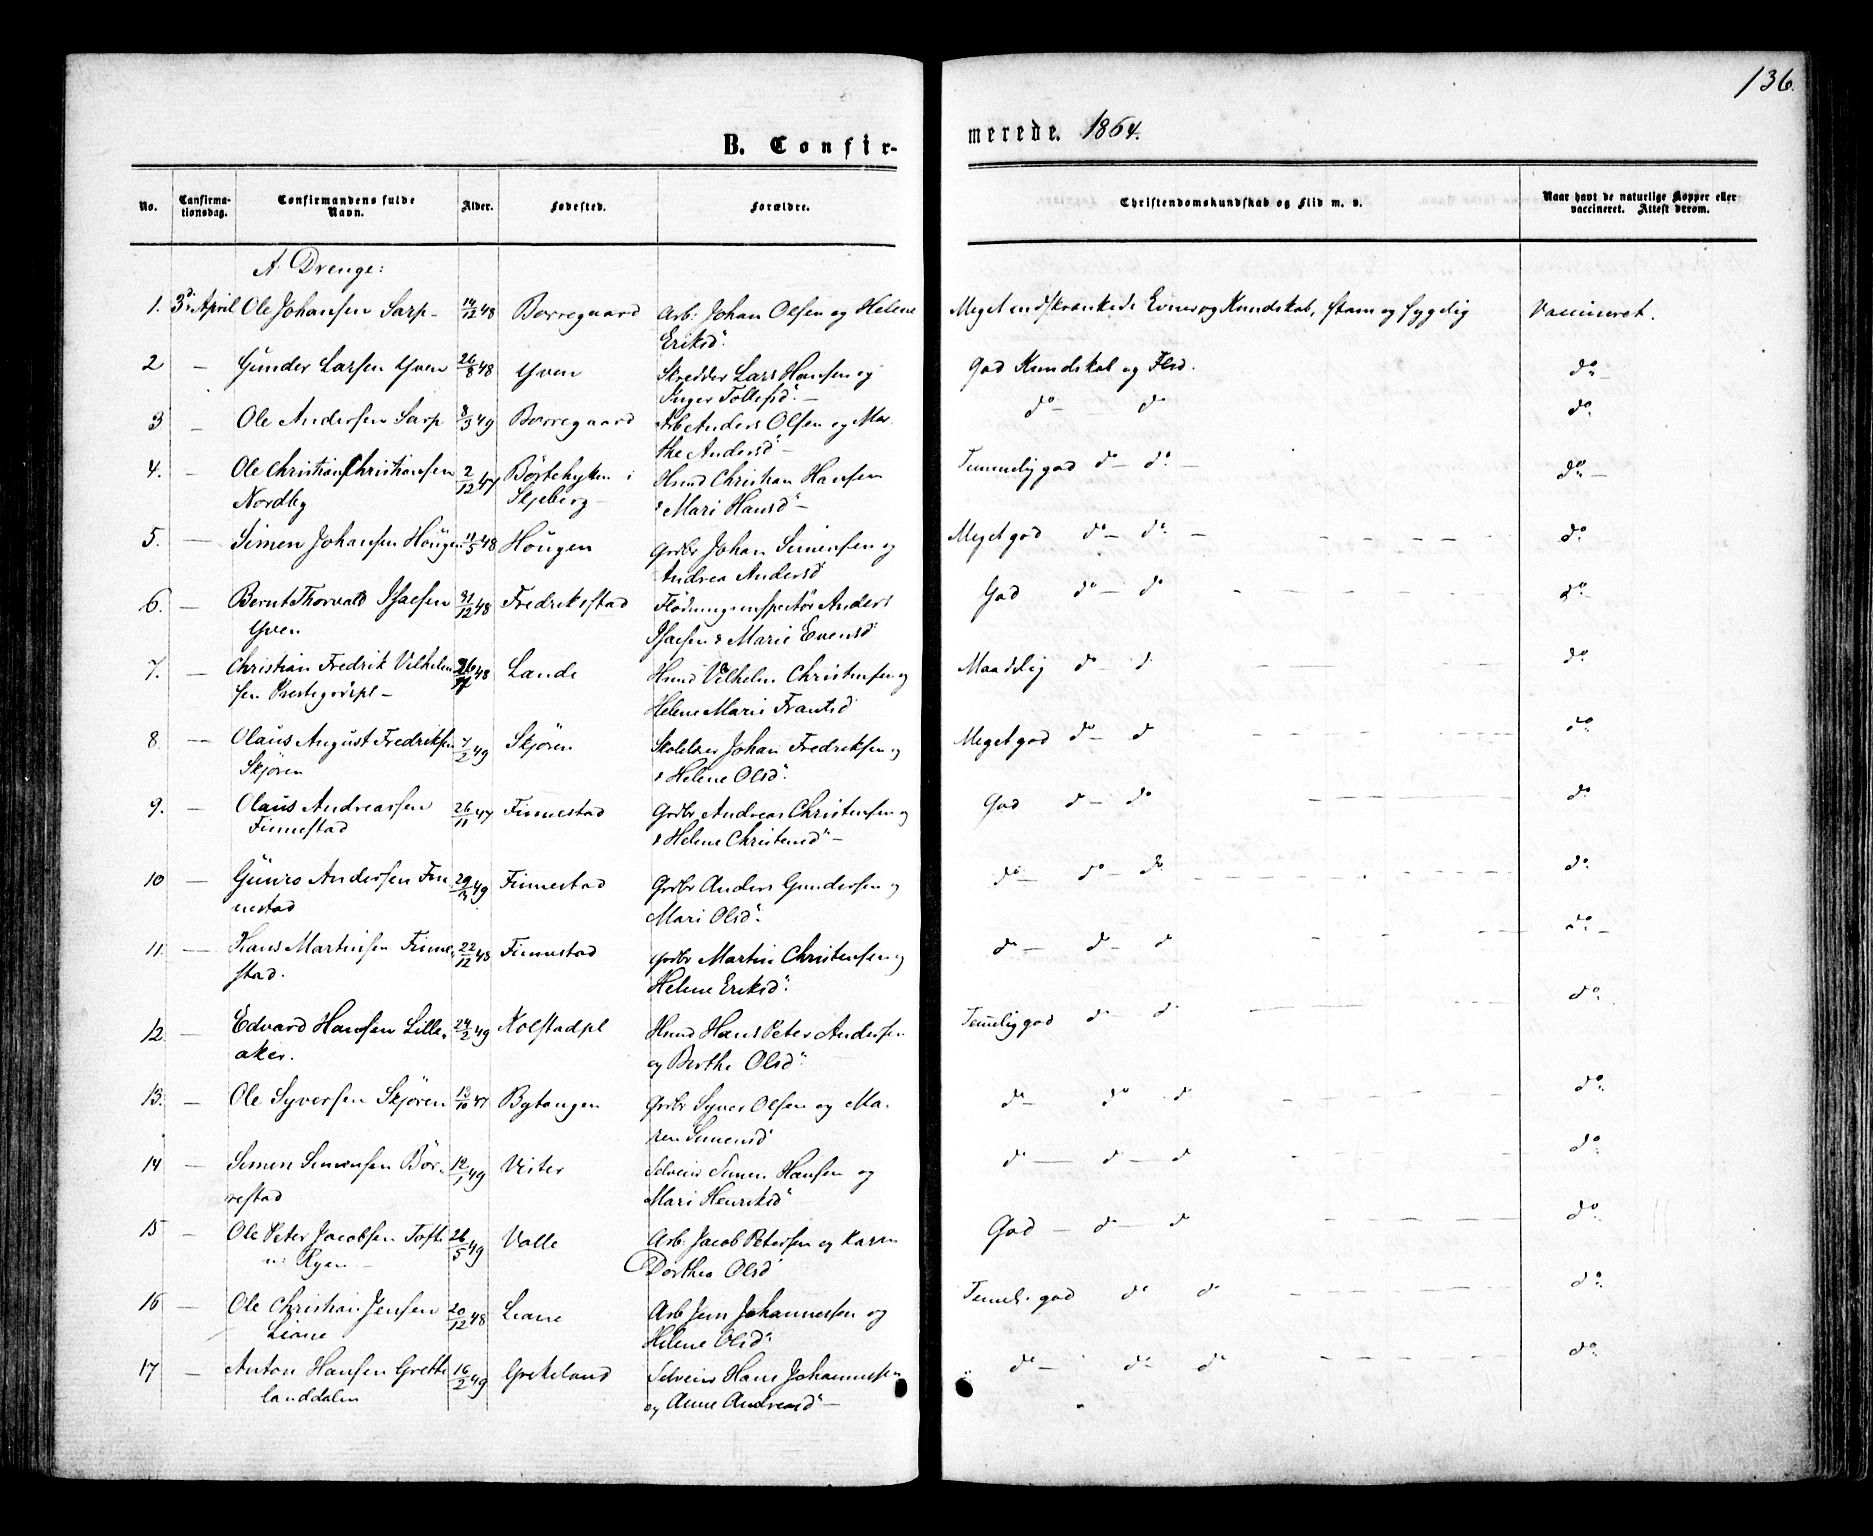 136.
B. Confir-
merede. 1864.
No.
Confirma-
tionsdag.
Confirmandens fulde
Navn.
Alder.
Fødested.
Forældre.
Christendomskundskab og Flid m. v.
Naar havt de naturlige Kopper eller
vaccineret. Attest derom.
A Drenge:
1. 3d April Ole Johansen Sarp 14/12 48 Borregaard Arb: Johan Olsen og Helene Meget indskrænkede Evner og Kundskab, stam og sygelig Vaccineret.
Eriksd
2 — Gunder Larsen Yven 26/8 48 Yven Skredder Lars Hansen og God Kundskab og Flid. do
Inger Tollefsd
3 — Ole Andersen Sarp 8/3 49 Borregaard Arb Anders Olsen og Mar do do do
the Andersd
4. — Ole Christian Christiansen 2/12 47 i Hmd Christian Hansen Temmelig god do do do
Nordby Skjeberg & Mari Hansd
5. — Simen Johansen Hougen 11/5 48 Hougen Grdbr Johan Simensen og Meget god do do do
Andrea Andersd
6. — Bernt Thorvald Isaksen 31/12 48 Fredriksstad Flødningsinspektør Anders God do do do
Yven Isaksen & Marie Evensd
7. — Christian Fredrik Vilhelm 48 Lande Hmd Vilhelm Christensen og Maadelig do do do
sen Prestegrdspl Helene Marie Frantsd
8 — Olaus August Fredriksen 7/2 49 Skjøren Johan Fredriksen og Meget god do do do
Skjøren & Helene Olsd
9. — Olaus Andreassen 26/11 47 Finnestad Grdbr Andreas Christensen og God do do do
Finnestad & Helene Christensd
10 — Andersen Fin 49 Finnestad Grdbr Anders Gundersen og do do do do
nestad Mari Olsd
11. — Hans Martinsen Finne 22/12 48 Finnestad Grdbr Martin Christensen og do do do do
stad. Helene Eriksd
12 — Edvard Hansen Lille 24/2 49 Kolstadpl Hmd Hans Peter Andersen Temelig god do do do
aker. og Berthe Olsd
13. — Ole Syversen Skjøren 13/10 47 Bytangen Grdbr Syver Olsen og Ma do do do do
ren Simensd
14 — Simen Simensen Bør 49 Vister Selveier Simen Hansen og do do do do
restad Mari Henriksd
15 — Ole Peter Jacobsen Tofte 26/5 49 Valle Arb: Jacob Petersen og Karen God do do do
Ryen Dorthea Olsd
16 — Ole Christian Jensen 20/12 48 Liane Arb Jens Johannessen og Temel. god do do do
Liane Helene Olsd
17 — Anton Hansen Grette 16/2 49 Selveier Hans Johannessen do do do do
landdalen og Anne Andreasd